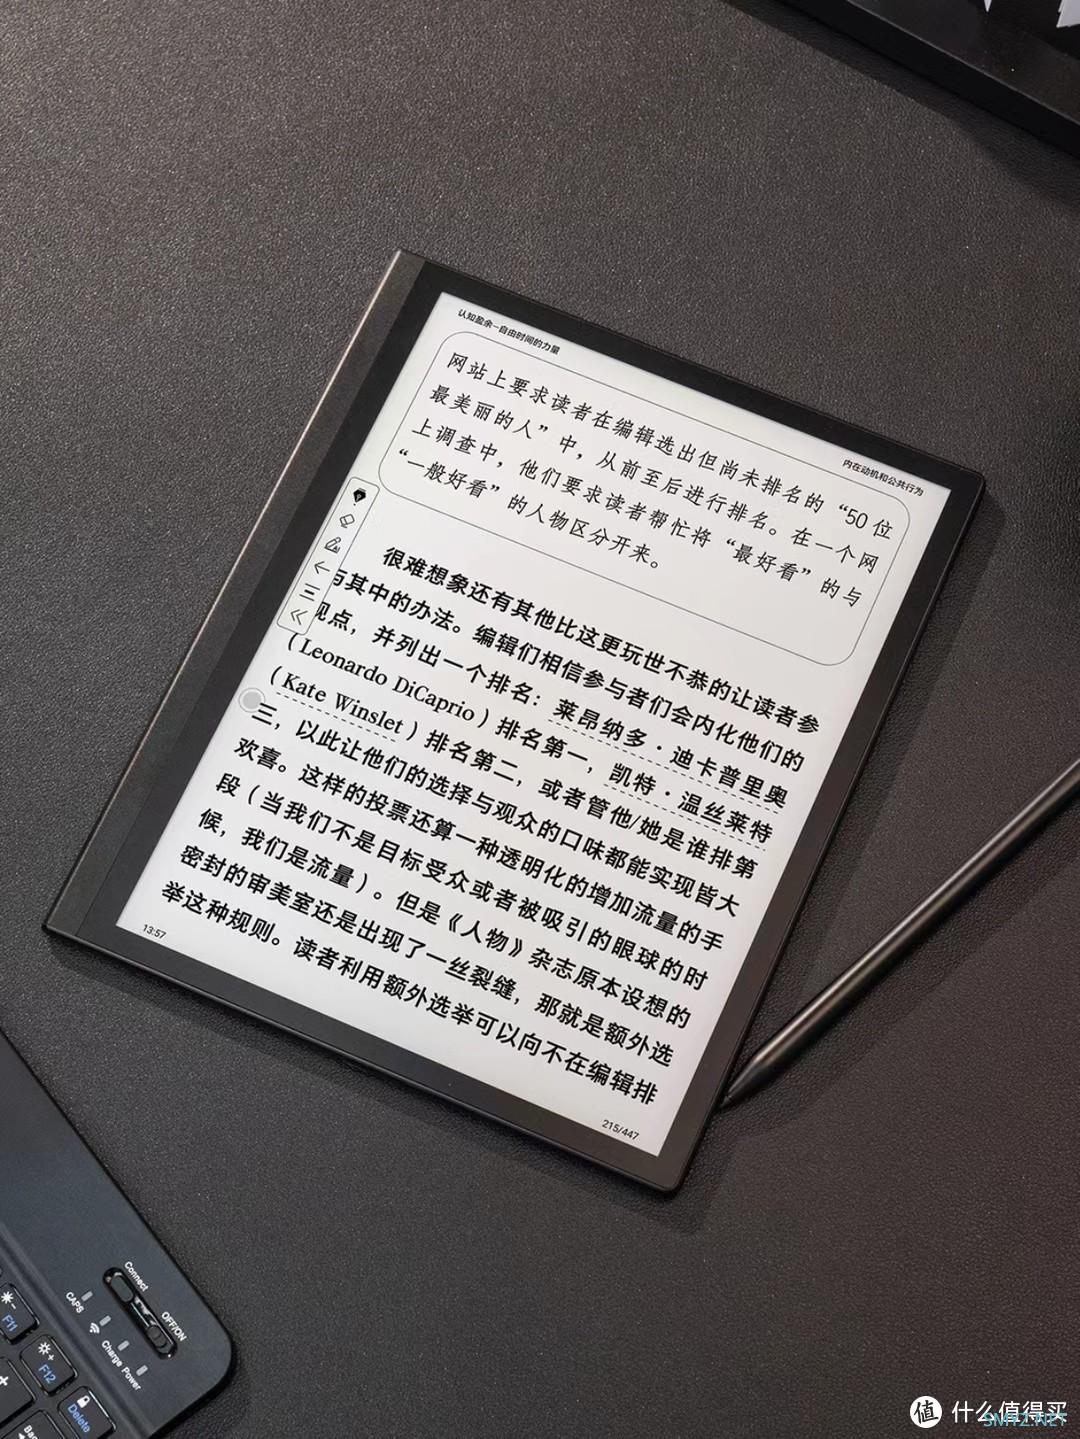 认知盈余—自由时间的力量
内在动机和公共行为
网站上要求读者在编辑选出但尚未排名的“50位
最美丽的人”中，从前至后进行排名。在一个网
上调查中，他们要求读者帮忙将“最好看”的与
“一般好看”的人物区分开来。
很难想象还有其他比这更玩世不恭的让读者参
与其中的办法。编辑们相信参与者们会内化他们的
观点，并列出一个排名：莱昂纳多·迪卡普里奥
（Leonardo DiCaprio）排名第一，凯特·温丝莱特
（Kate Winslet）排名第二，或者管他/她是谁排第
三，以此让他们的选择与观众的口味都能实现皆大
欢喜。这样的投票还算一种透明化的增加流量的手
段（当我们不是目标受众或者被吸引的眼球的时
候，我们是流量）。但是《人物》杂志原本设想的
密封的审美室还是出现了一丝裂缝，那就是额外选
举这种规则。读者利用额外选举可以向不在编辑排
13:57
215/447
Connect
OFF/ON
CAPS
Charge
Power
F11
F12
Delete
Bac
值 什么值得买
SMYZ.NET